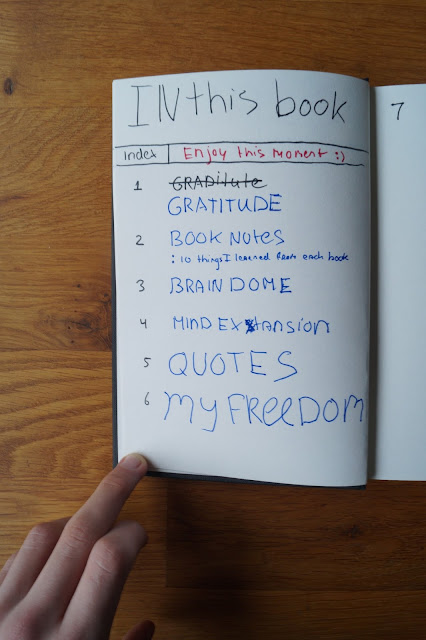 INthis book
index Enjoy this Moment :)
1 GRADitute
GRATITUDE
2 BOOK NOteS
: 10 things I learned from each book
3 BRAIN DOME
4 MIND EXtANsion
5 QUOTES
6 MY FReeDOM
7